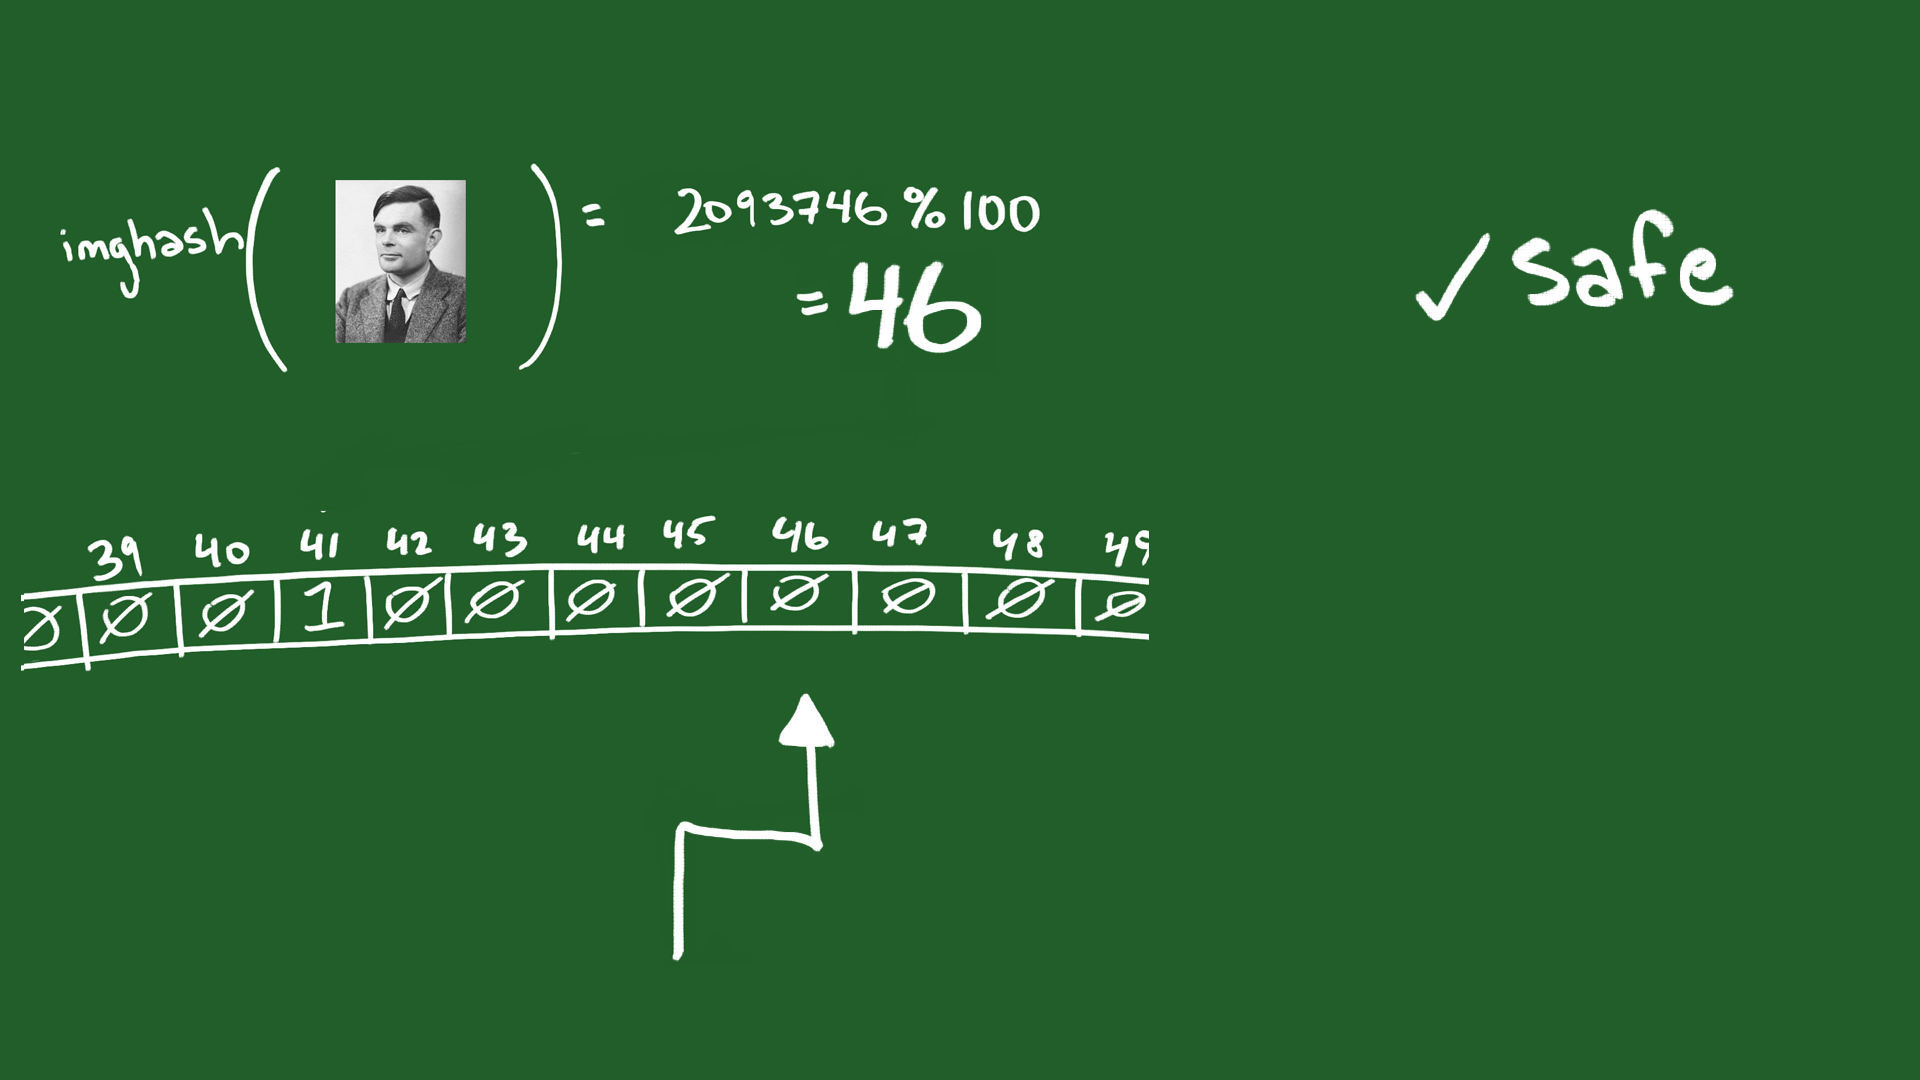 imghash( ) = 2093746 % 100
= 46
✓ safe
39 40 41 42 43 44 45 46 47 48 49
Ø Ø Ø 1 Ø Ø Ø Ø Ø Ø Ø Ø